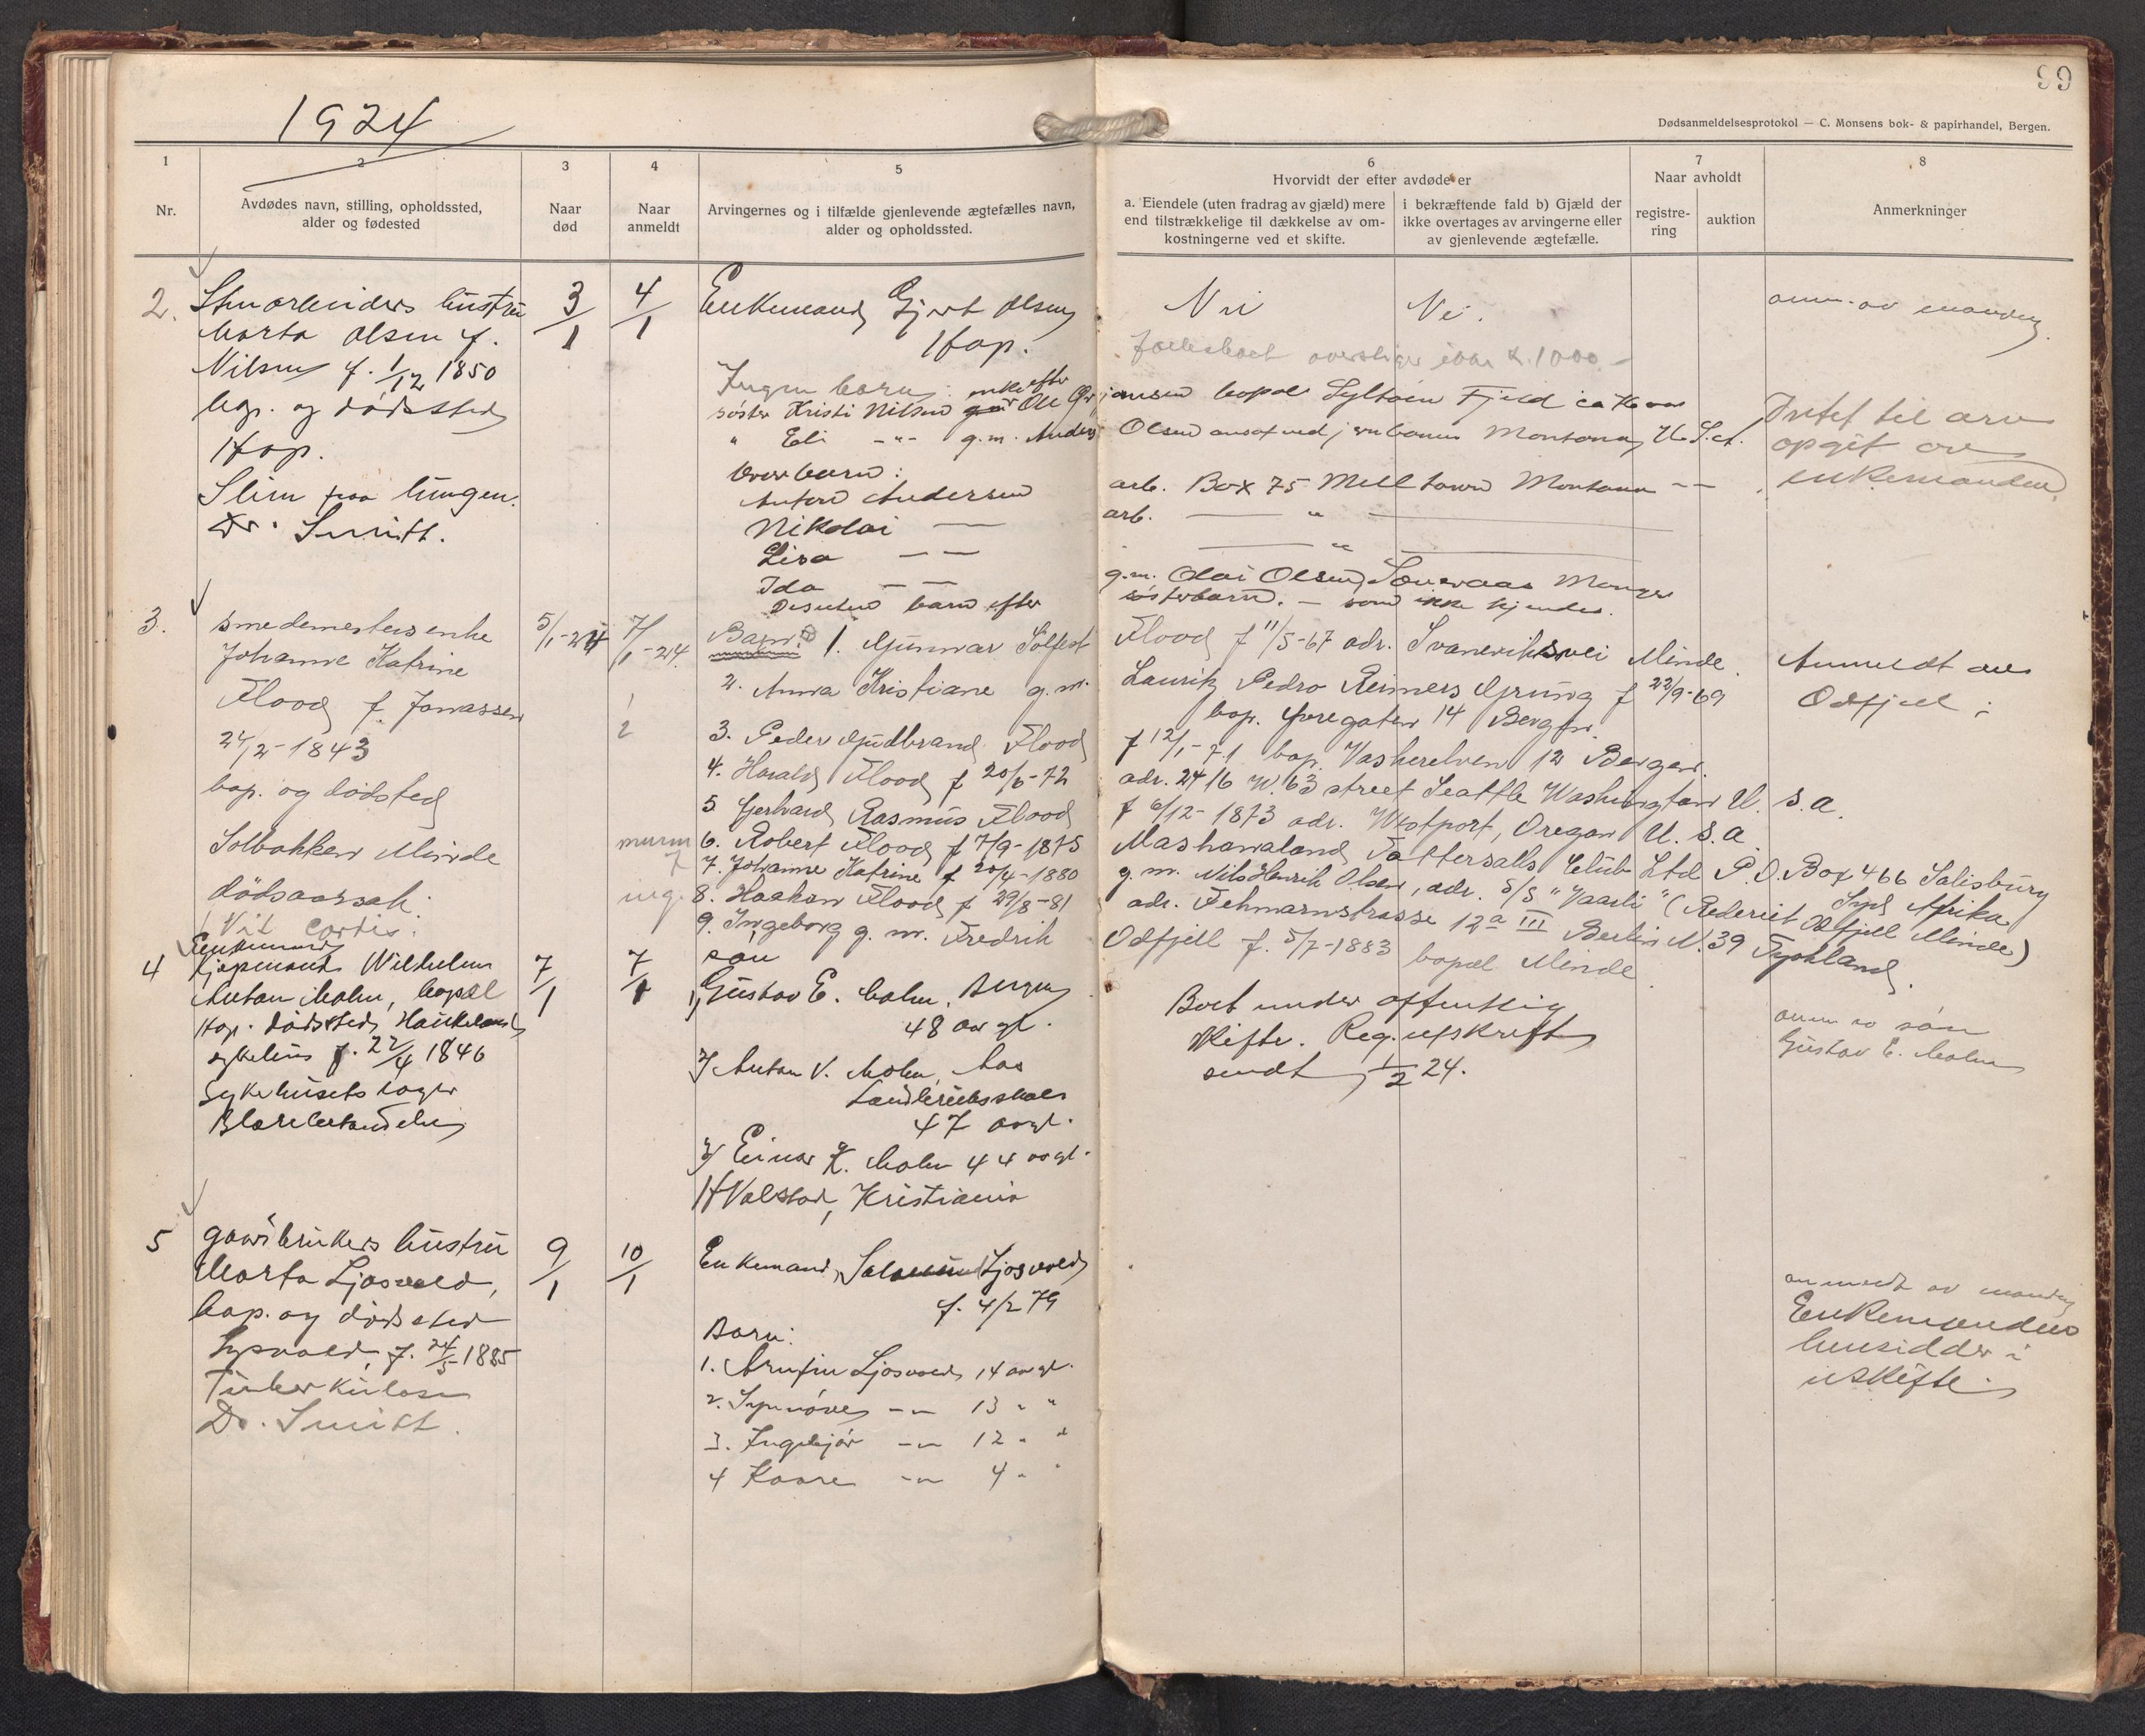 99
1924
Dødsanmeldelsesprotokol — C. Monsens bok- & papirhandel, Bergen.
1
Nr.
2
Avdødes navn, stilling, opholdssted,
alder og fødested
3
Naar
død
4
Naar
anmeldt
5
Arvingernes og i tilfælde gjenlevende ægtefælles navn,
alder og opholdssted.
6
Hvorvidt der efter avdøde er
a. Eiendele (uten fradrag av gjæld) mere
end tilstrækkelige til dækkelse av om-
kostningerne ved et skifte.
i bekræftende fald b) Gjæld der
ikke overtages av arvingerne eller
av gjenlevende ægtefælle.
7
Naar avholdt
registre-
ring
auktion
8
Anmerkninger
2.
hustru
Marta Olsen f.
Nilsen f. 1/12 1850
bop. og dødssted
Hop.
Slim paa lungen.
Dr. Smitt.
3/1
4/1
Enkemand Gjert Olsen
Hop.
Ingen barn. enke efter
søster Kristi Nilsen Ole
" Eli -"- g.m. Anders
barn:
Anton Andersen
Nikolai —
Lisa — —
Ida — —
Desuten barn efter
Nei
Nei.
Fællesboet overstiger ikke k. 1000.-
bopæl Fjeld
Olsen ansat ved jernbanen Montana U.S.A.
arb. Box 75 Milltown Montana — —
arb. — " —
— " —
g.m. Olai Olsen, Manger
søsterbarn. — som ikke kjendes.
anm. av manden.
til arv
opgit av
enkemanden.
3.
Smedemesters enke
Johanne Katrine
Flood f. Jonassen
24/2-1843
bop. og dödsted
Solbakken Minde
dödsaarsak:
Vit. cordis.
5/1-24
7/1-24.
Barn: 1. Gunnar Solfest
2. Anna Kristiane g.m.
3. Peder Gudbrand Flood
4. Harald Flood f 20/6-72
5 Gerhard Rasmus Flood
6. Robert Flood f 7/9-1875
7. Johanne Katrine f 20/4-1880
ing. 8. Haakon Flood f 29/8-81
9. Ingeborg g.m. Fredrik
1
2
Flood f 11/5-67 adr. Minde.
Lauritz Pedro Reimers Grung f 22/9-69
bop. Øvregaten 14 Bergen.
f 12/1-71 bop. Vaskerelven 12 Bergen.
adr. 2416 W. 63 street Seattle Washington U.S.A.
f 6/12-1873 adr. Westport, Oregon U.S.A.
Mashonaland Tattersalls Club Ltd P.O. Box 466 Salisbury
Syd Afrika
g.m. Nils Henrik Olsen, adr. S/S "Vaarli" (Rederiet Odfjell Minde)
adr. Fehmarnstrasse 12a III Berlin N.39 Tyskland.
Odfjell f. 5/7-1883 bopæl Minde
Anmeldt av
Odfjell
4
Enkemand
Kjøpmand Wilhelm
Anton Mohn, bopæl
Hop. dødssted, Haukelands
sykehus f. 22/4 1846
Sykehusets læge
7/1
7/1
søn
1, Gustav E. Mohn, Bergen
48 aar gl.
2, Anton V. Mohn, Aas
Landbruksskole
47 aar gl.
3, Einar K. Mohn 44 aar gl.
Hvalstad, Kristiania
Boet under offentlig
skifte. Reg. utskrift
sendt 1/2 24.
anm av søn
Gustav E. Mohn
5
gaardbrukers hustru
Marta Ljosvold,
bop. og dødssted
f. 24/5-1885
Tuberkulose
Dr. Smitt.
9/1
10/1
Enkemand, Ljosvold
f. 4/2 79
Barn:
1. Ljosvold 14 aar gl.
2. Synnøve -"- 13 " "
3. Ingebjør -"- 12 " "
4 Kaare -"- 4 " "
anmeldt av manden
Enkemanden
hensidder i
uskifte